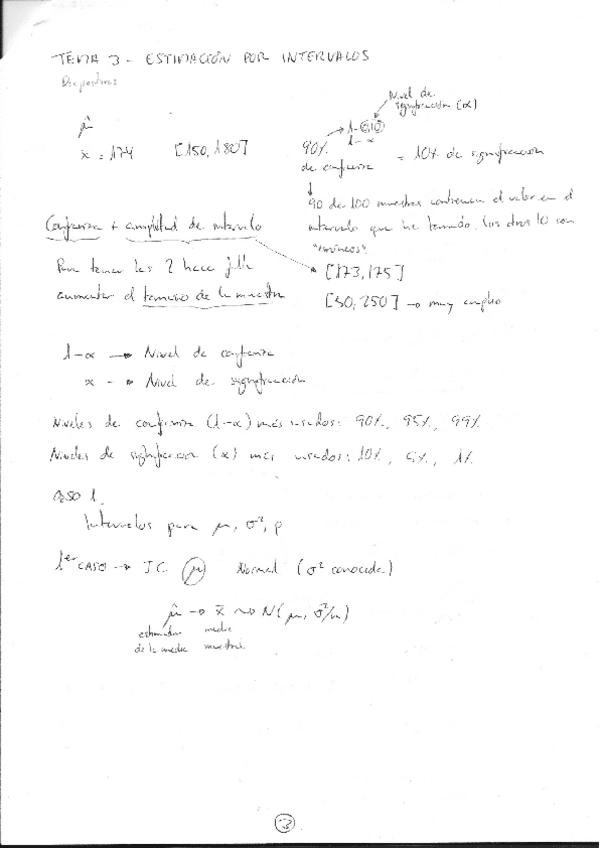 TEMA 3 - ESTIMACIÓN POR INTERVALOS
Diapositivas
Nivel de
significación (α)
μ̂
1-0,10
1-α
x̄ = 174 [150, 180]
90%
de confianza = 10% de significación
90 de 100 muestras contienen el valor en el
intervalo que he tomado. Los otros 10 son
"erróneos".
Confianza + amplitud de intervalo
Para tener los 2 hace falta
aumentar el tamaño de la muestra
[173, 175]
[50, 250] → muy amplio
1-α → Nivel de confianza
α → Nivel de significación
Niveles de confianza (1-α) más usados: 90%, 95%, 99%
Niveles de significación (α) más usados: 10%, 5%, 1%
Caso 1.
Intervalos para μ, σ², p
1er CASO → I.C. μ Normal (σ² conocida)
μ̂ → x̄ ~ N(μ, σ²/n)
estimador media
de la media muestral
3